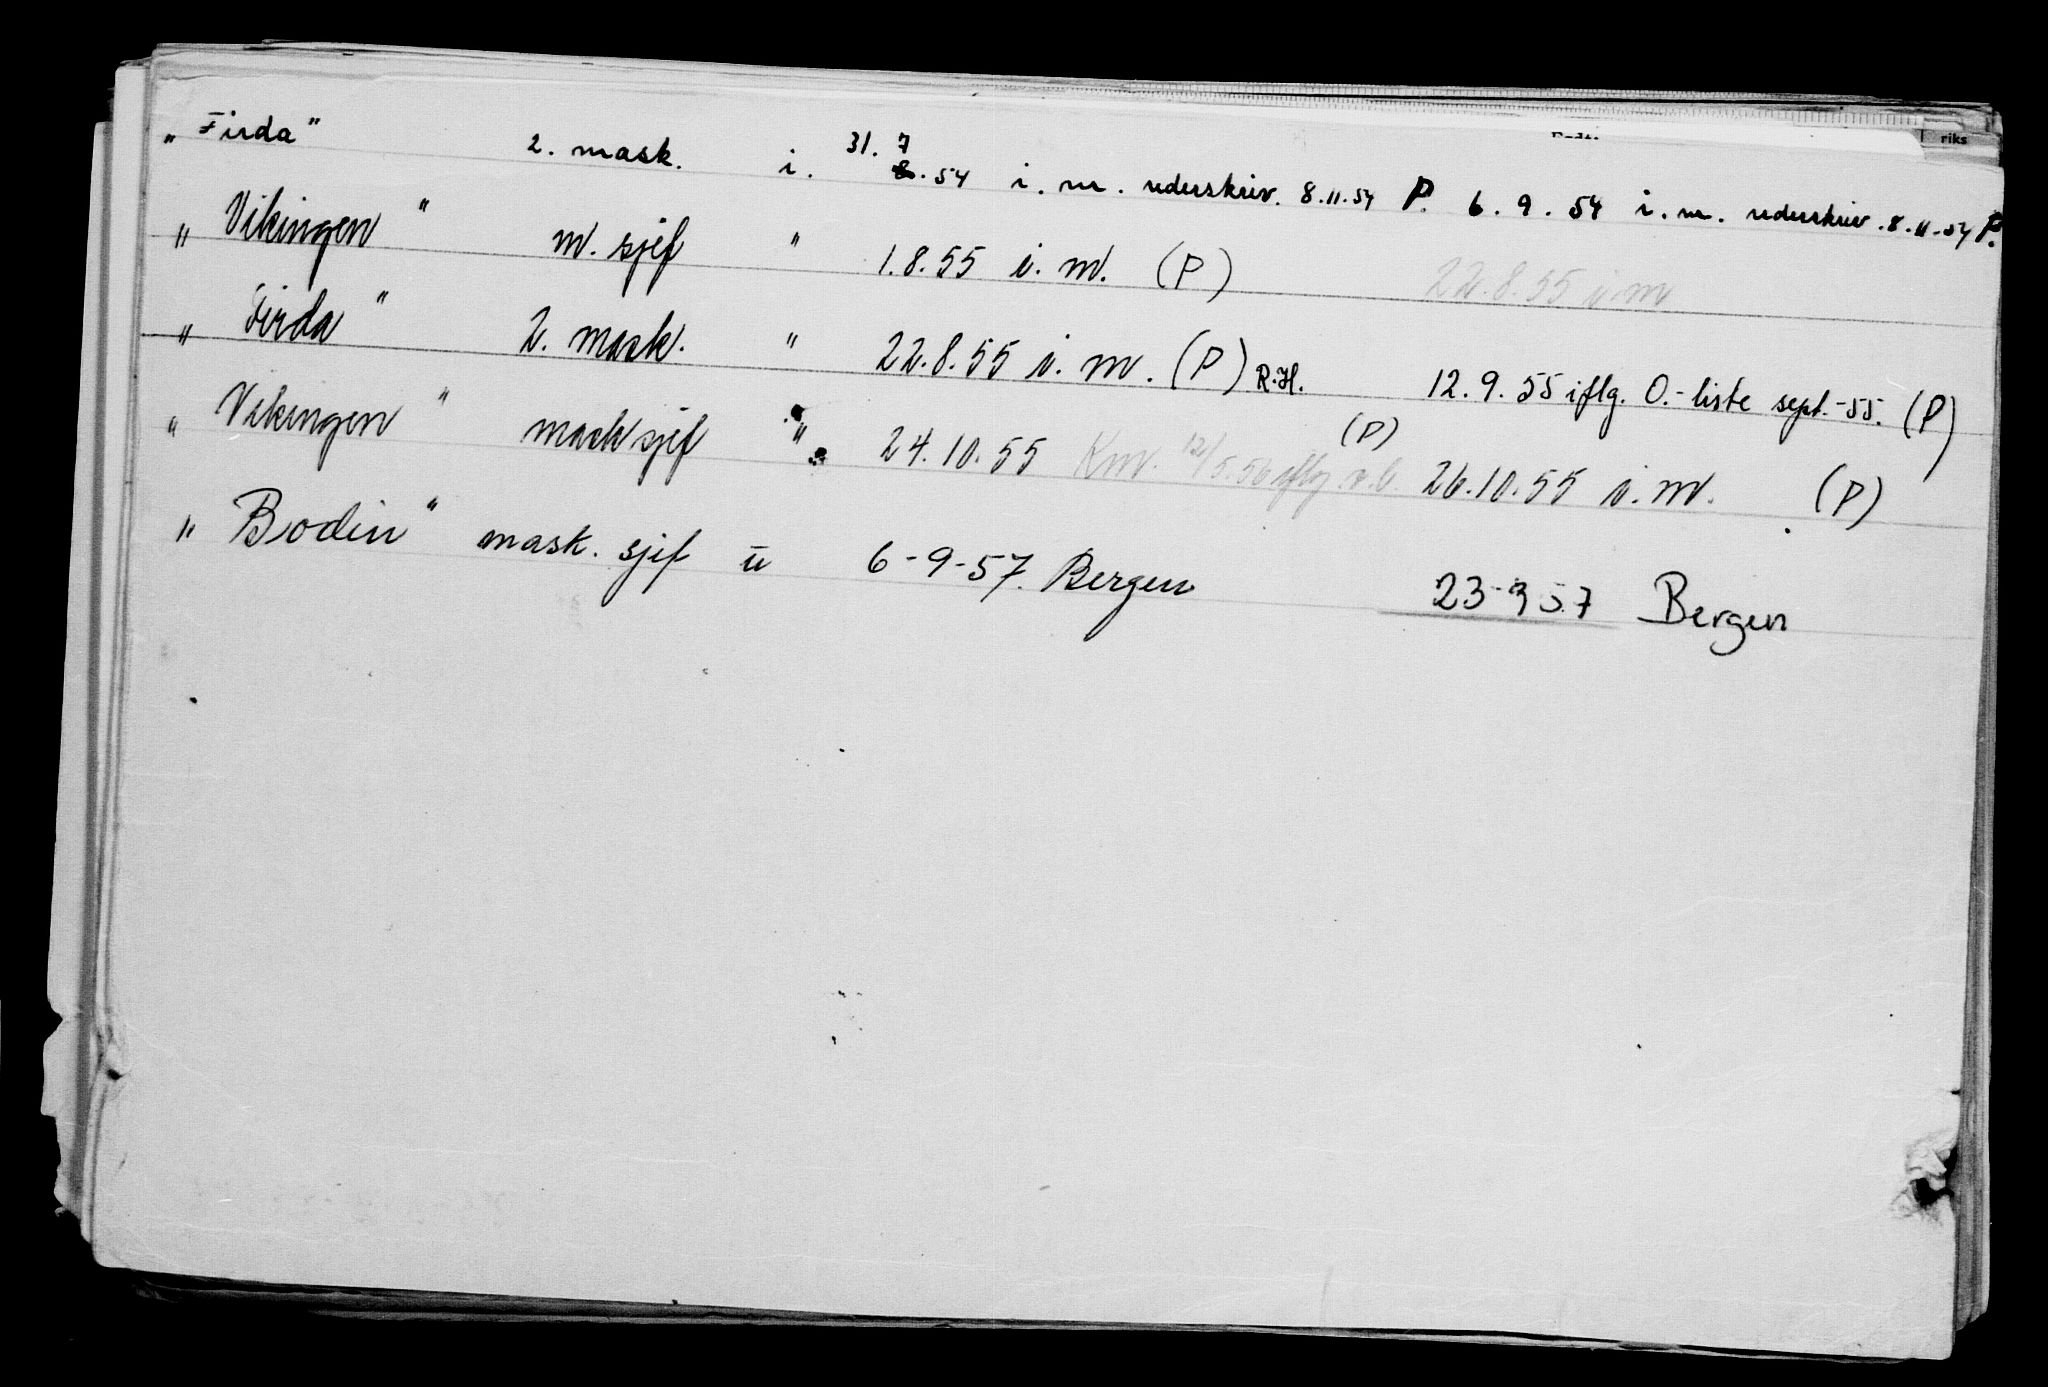 Født: riks
„Firda" 2. mask. i. 31. 7 8. 54 i. m. rederskriv. 8.11.54 P. 6. 9. 54 i. m. rederskriv. 8.11.54 P.
„Vikingen" m. sjef " 1.8.55 i. m. (P) 22.8.55 i m
„Firda" 2. mask. " 22.8.55 i. m. (P) R.H. 12. 9. 55 iflg. O.-liste sept.-55. (P)
„Vikingen" mask sjef " 24.10.55 Km. 12/5.56 iflg (P) 26.10.55 i. m. (P)
„Bodin" mask. sjef u 6-9-57. Bergen 23-9 57 Bergen